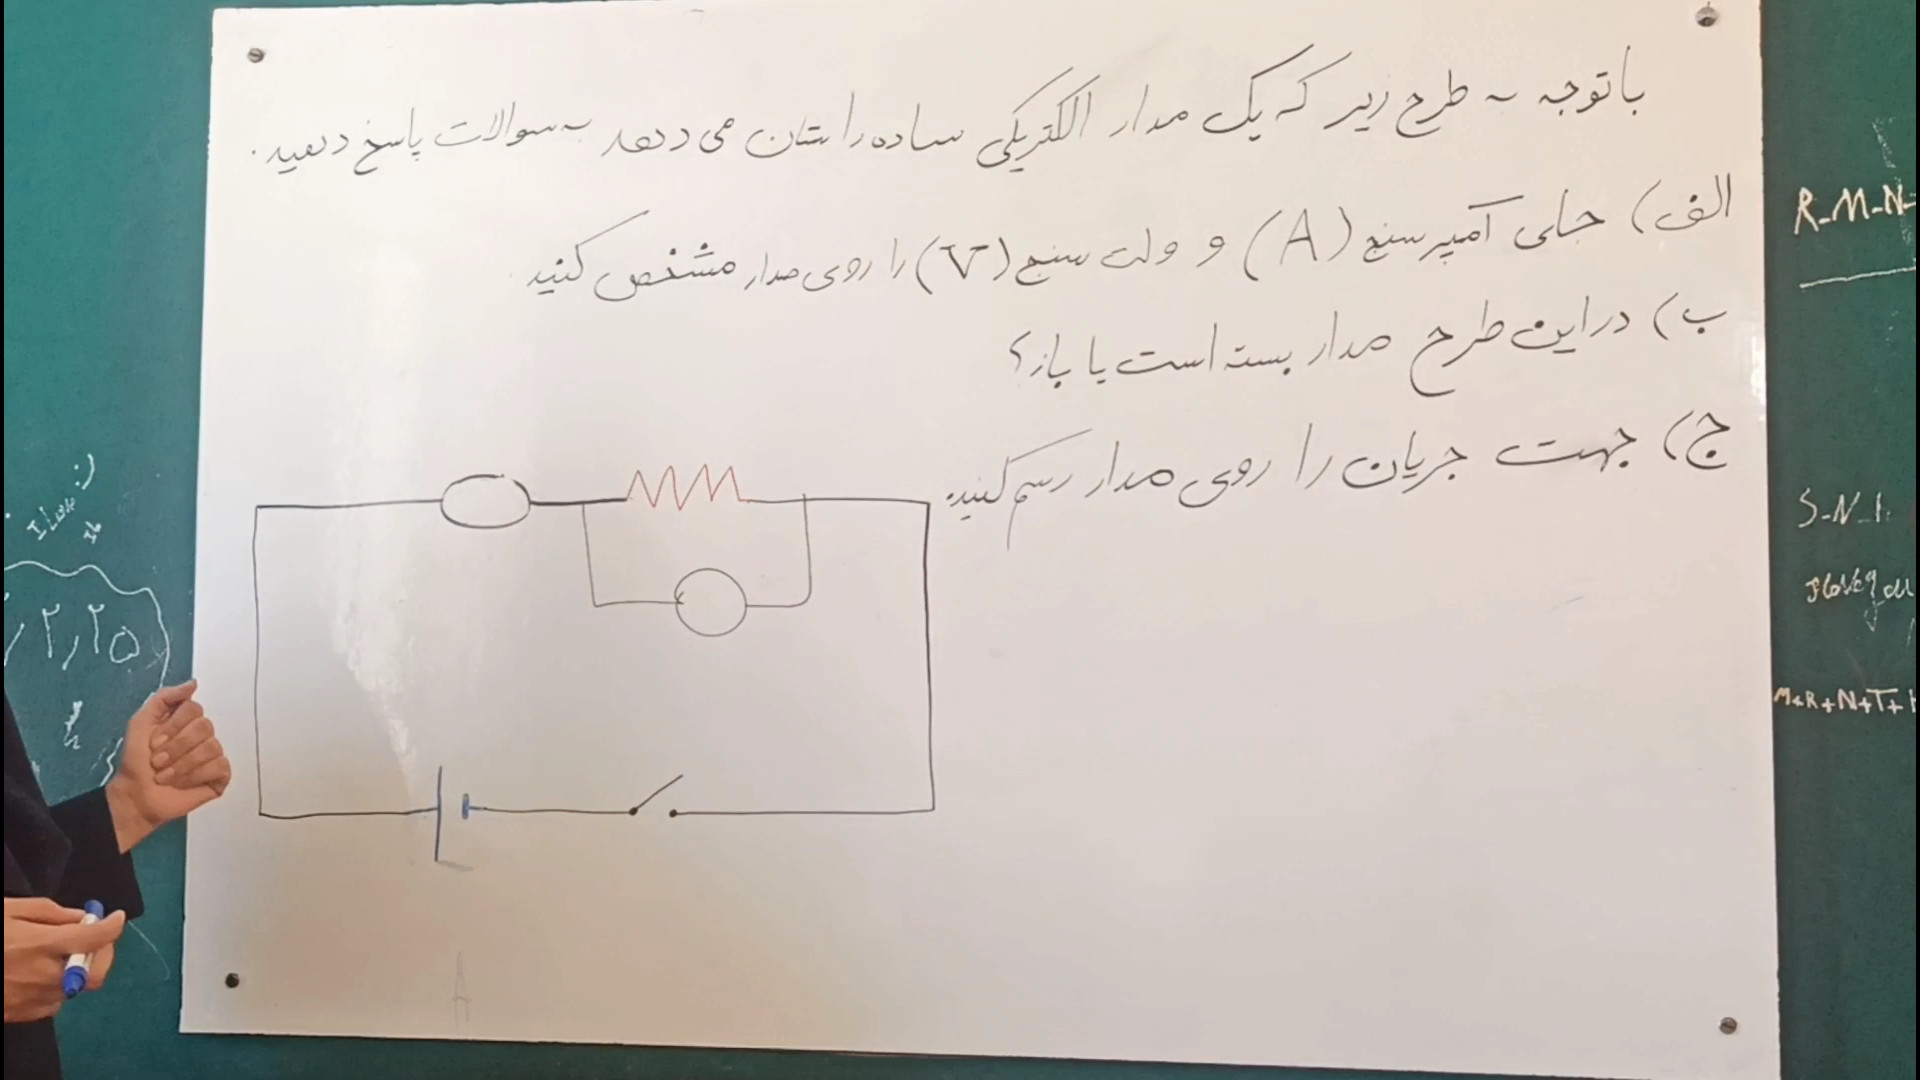 با توجه به طرح زیر که یک مدار الکتریکی ساده را نشان می دهد به سوالات پاسخ دهید.
الف) جای آمپرسنج (A) و ولت سنج (V) را روی مدار مشخص کنید.
ب) در این طرح مدار بسته است یا باز؟
ج) جهت جریان را روی مدار رسم کنید.
۲,۲۵
A
R-M-N-
S-N-I
M+R+N+T+